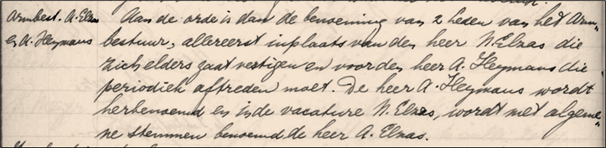 Armbest. A. Elzas
en A. Heymans
Aan de orde is dan de benoeming van 2 leden van het Arm-
bestuur, allereerst inplaats van den heer N. Elzas die
zich elders gaat vestigen en voor den heer A. Heymans die
periodiek aftreden moet. De heer A. Heymans wordt
herbenoemd en in de vacature N. Elzas, wordt met algeme-
ne stemmen benoemd de heer A. Elzas.